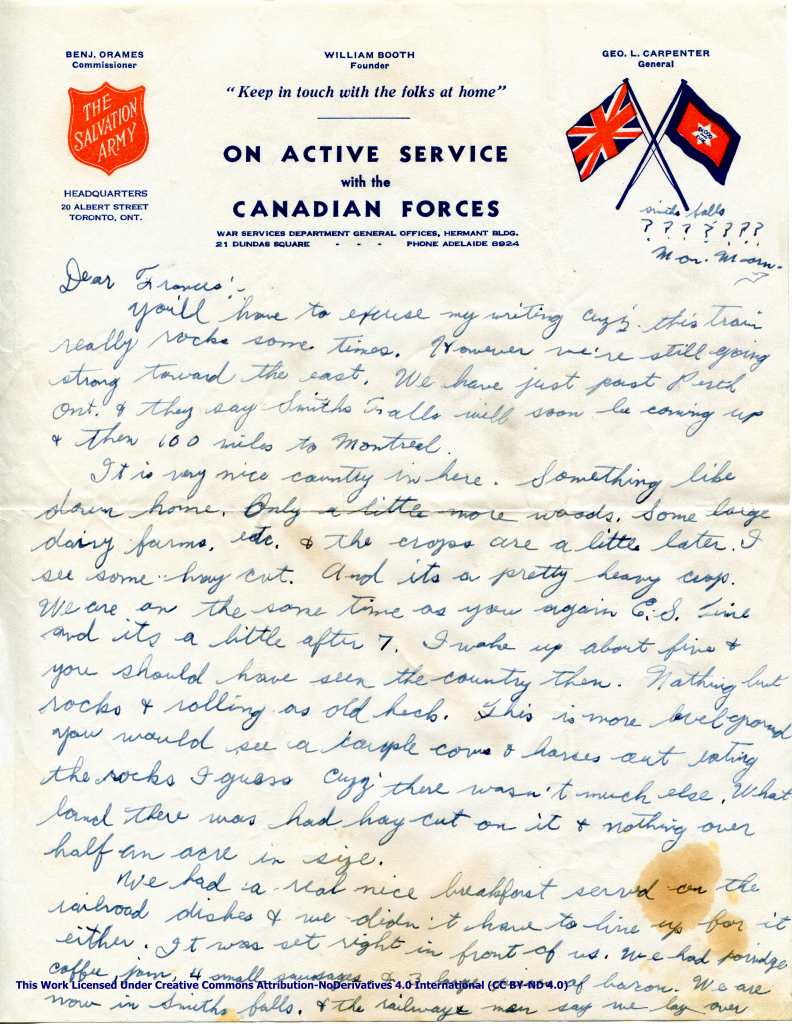 BENJ. ORAMES
Commissioner
WILLIAM BOOTH
Founder
GEO. L. CARPENTER
General
THE
SALVATION
ARMY
"Keep in touch with the folks at home"
ON ACTIVE SERVICE
with the
CANADIAN FORCES
HEADQUARTERS
20 ALBERT STREET
TORONTO, ONT.
WAR SERVICES DEPARTMENT GENERAL OFFICES, HERMANT BLDG.
21 DUNDAS SQUARE - - - PHONE ADELAIDE 8924
smiths falls
? ? ? ? ? ? ?
Mon. Morn.
Dear Frances:
You'll have to excuse my writing cuzz this train
really rocks some times. However we're still going
strong toward the east. We have just past Perth
Ont. & they say Smiths Falls will soon be coming up
& then 100 miles to Montreal.
It is very nice country in here. Something like
down home. Only a little more woods. Some large
dairy farms, etc. & the crops are a little later. I
see some hay cut. And its a pretty heavy crop.
We are on the same time as you again E.S. Time
and its a little after 7. I woke up about five &
you should have seen the country then. Nothing but
rocks & rolling as old heck. This is more level ground
You would see a couple cows & horses out eating
the rocks I guess cuzz there wasn't much else. What
land there was had hay cut on it & nothing over
half an acre in size.
We had a real nice breakfast served on the
railroad dishes & we didn't have to line up for it
either. It was set right in front of us. We had poridge
coffee, jam, 4 small sausages & 3 large of bacon. We are
This Work Licensed Under Creative Commons Attribution-NoDerivatives 4.0 International (CC BY-ND 4.0)
now in Smiths falls. & the railway man say we lay over